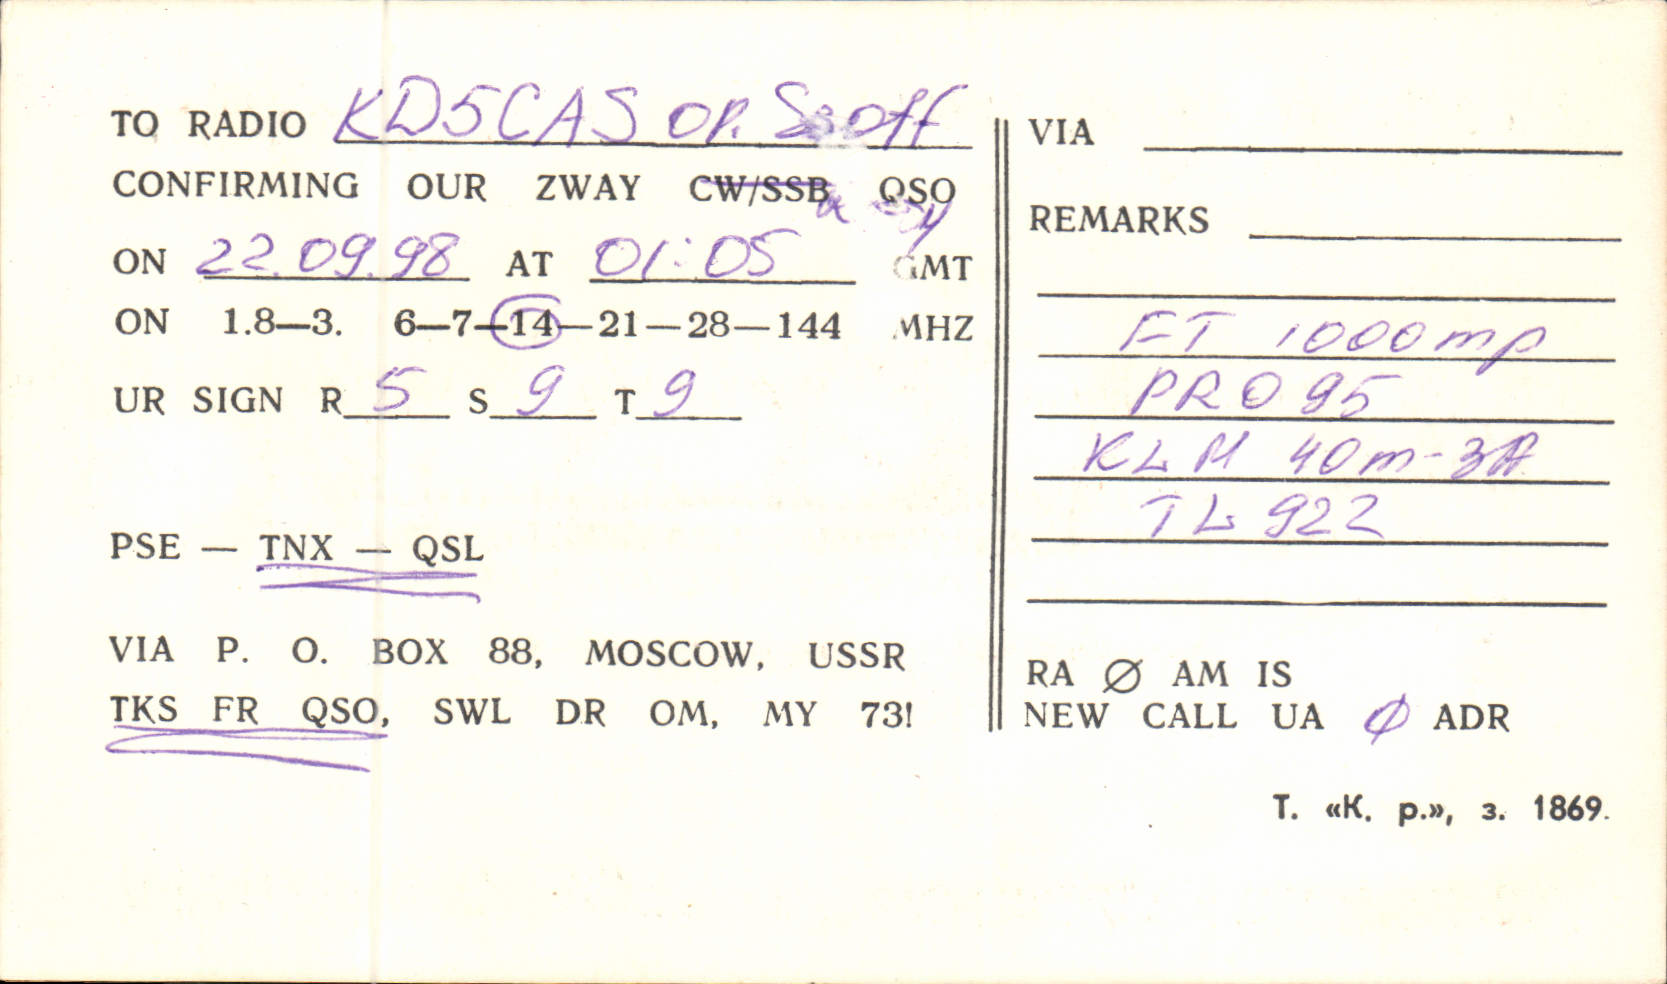 TO RADIO KD5CAS OP.
CONFIRMING OUR ZWAY CW/SSB QSO
ON 22.09.98 AT 01:05 GMT
ON 1.8—3. 6—7—14—21—28—144 MHZ
UR SIGN R 5 S 9 T 9
PSE — TNX — QSL
VIA P. O. BOX 88, MOSCOW, USSR
TKS FR QSO, SWL DR OM, MY 73!
VIA
REMARKS
FT 1000mp
PRO 95
KLM 40m-3A
TL 922
RA Ø AM IS
NEW CALL UA Ø ADR
Т. «К. р.», з. 1869.